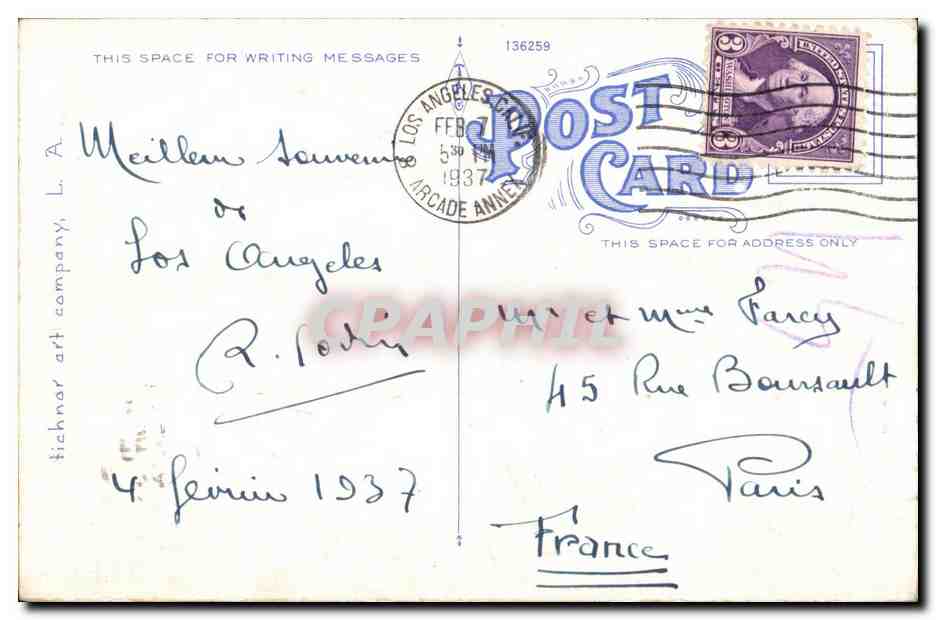 THIS SPACE FOR WRITING MESSAGES
136259
POST CARD
THIS SPACE FOR ADDRESS ONLY
LOS ANGELES, CALIF.
FEB 7
5 30 PM
1937
ARCADE ANNEX
3 3
UNITED STATES POSTAGE
tichnor art company, L. A.
Meilleur souvenir
de
Los Angeles
R.
4 février 1937
CPAPHIL
Mr et Mme Farcy
45 Rue Boursault
Paris
France